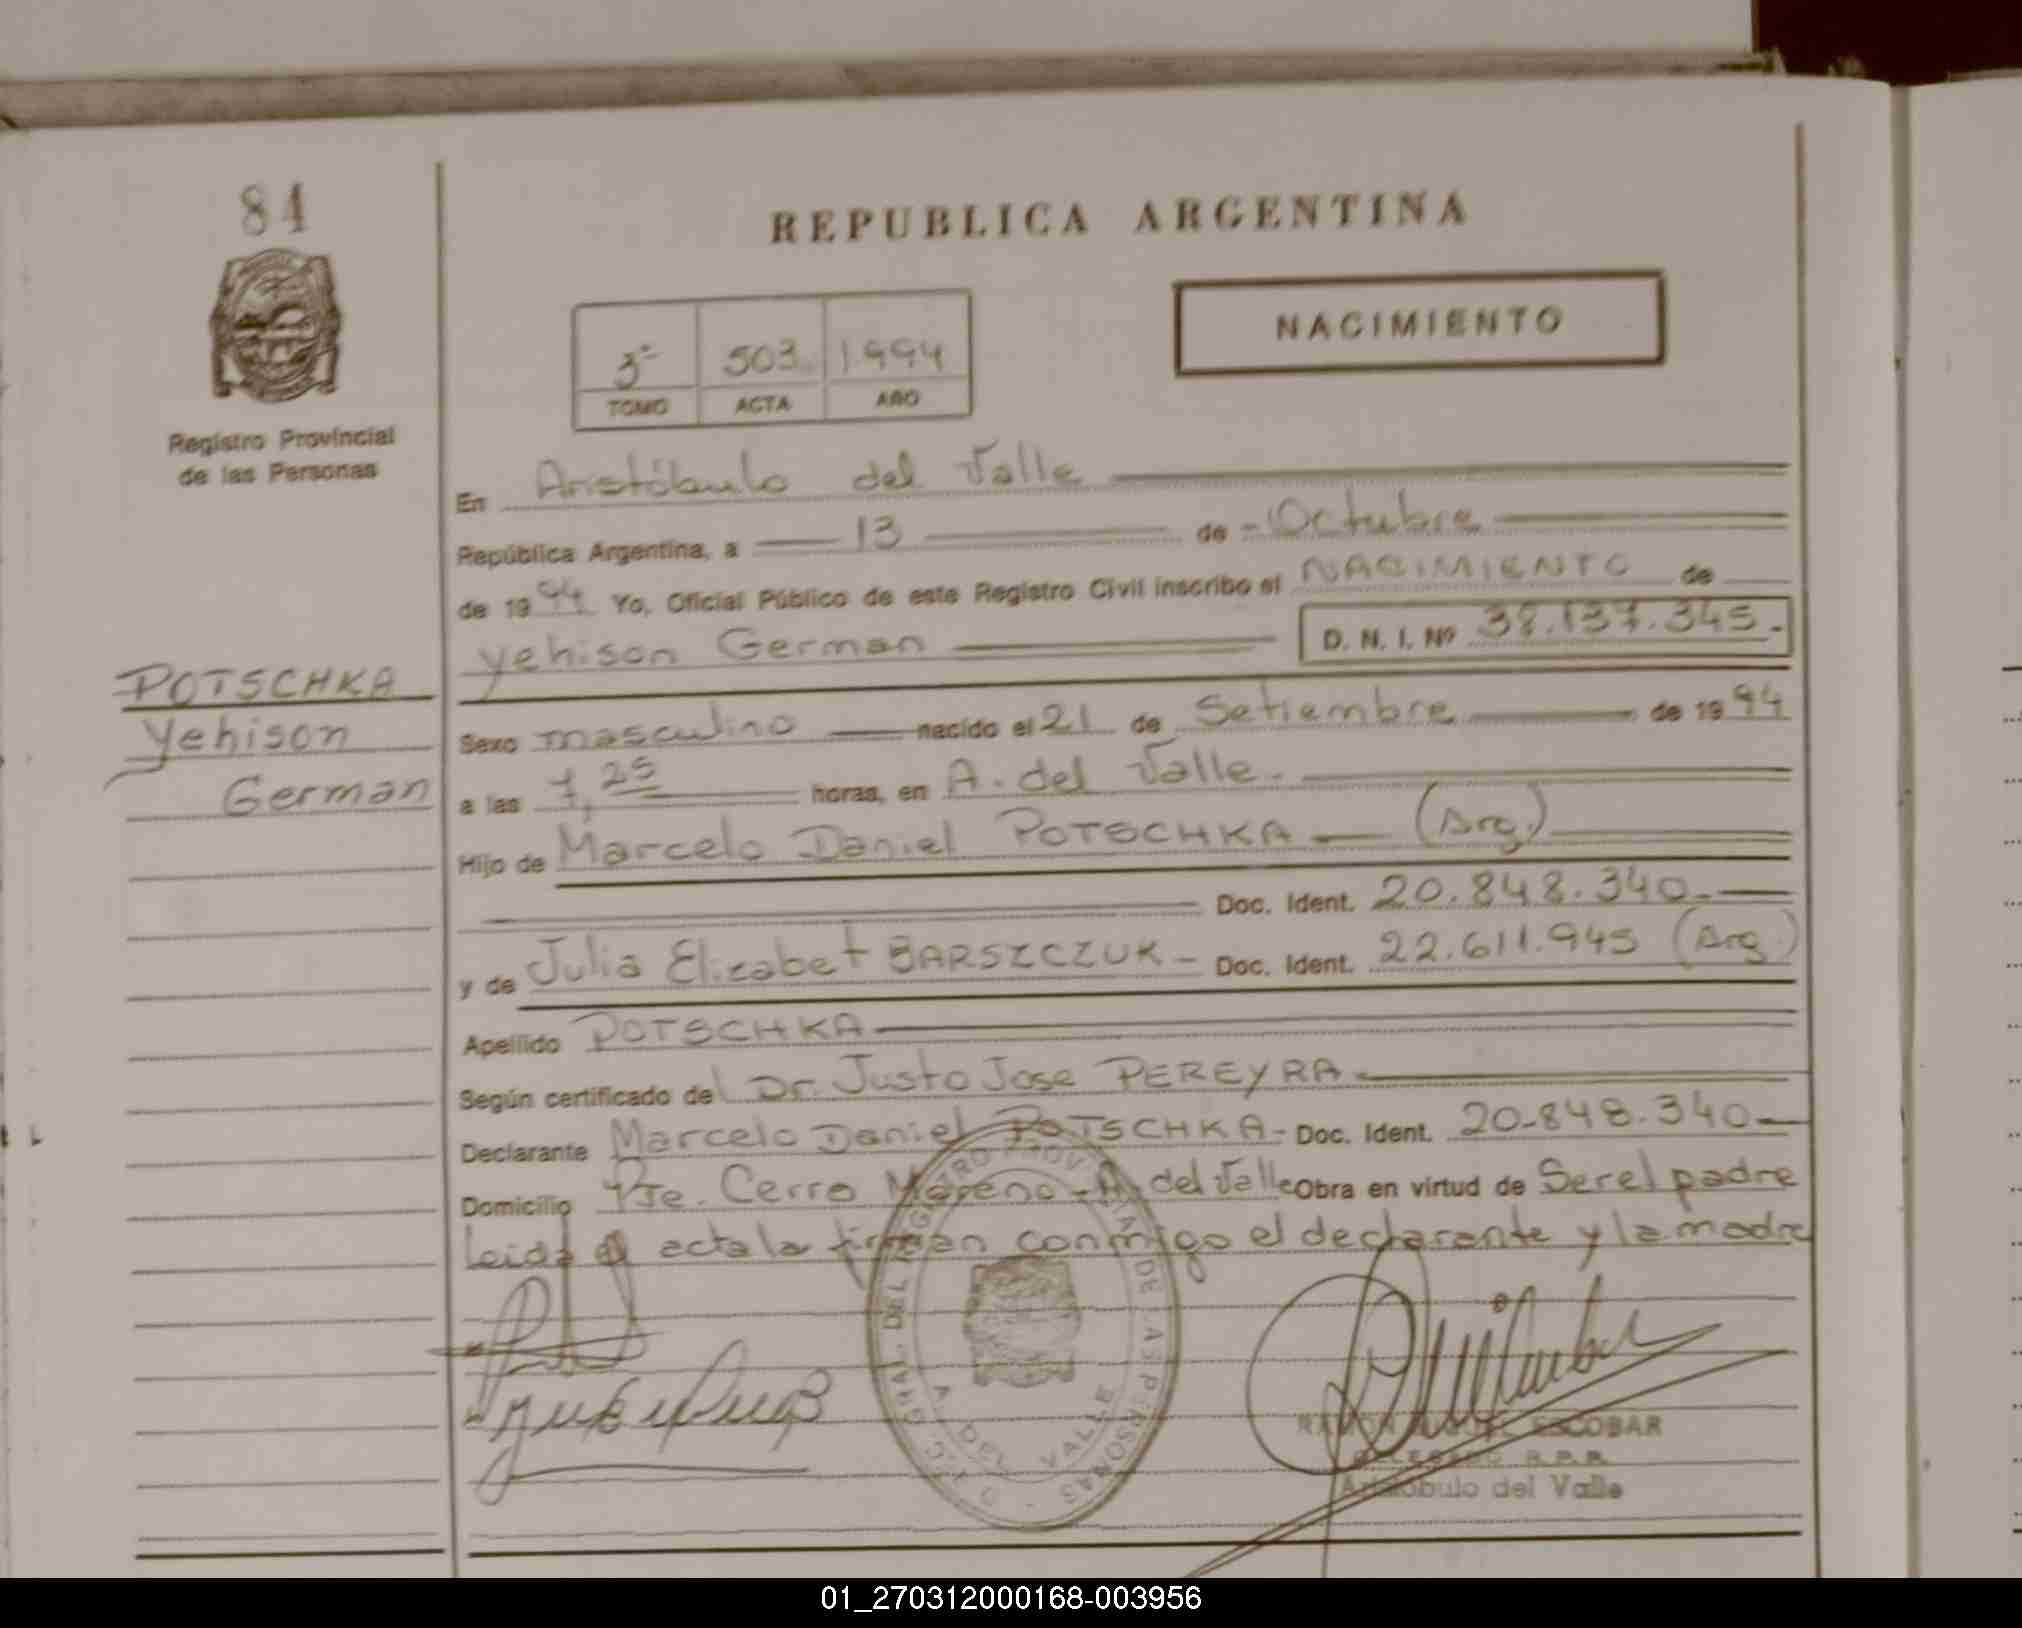 84
REPUBLICA ARGENTINA
NACIMIENTO
3º 503 1994
TOMO ACTA AÑO
Registro Provincial
de las Personas
En Aristóbulo del Valle
República Argentina, a 13 de Octubre
de 1994 Yo, Oficial Público de este Registro Civil inscribo el NACIMIENTO de
Yehison German D. N. I. Nº 38.137.345.-
POTSCHKA
Yehison
German
Sexo masculino nacido el 21 de Setiembre de 1994
a las 7,25 horas, en A. del Valle.
Hijo de Marcelo Daniel POTSCHKA (Arg.)
Doc. Ident. 20.848.340.-
y de Julia Elizabet BARSZCZUK - Doc. Ident. 22.611.945 (Arg.)
Apellido POTSCHKA
Según certificado del Dr. Justo Jose PEREYRA
Declarante Marcelo Daniel POTSCHKA - Doc. Ident. 20.848.340
Domicilio Pje. Cerro Moreno - A. del Valle Obra en virtud de Ser el padre
Leida el acta la firman conmigo el declarante y la madre
DIRC. GRAL. DEL REGISTRO PROVINCIAL DE LAS PERSONAS
A. DEL VALLE
ESCOBAR
R.P.P.
Aristóbulo del Valle
01_270312000168-003956